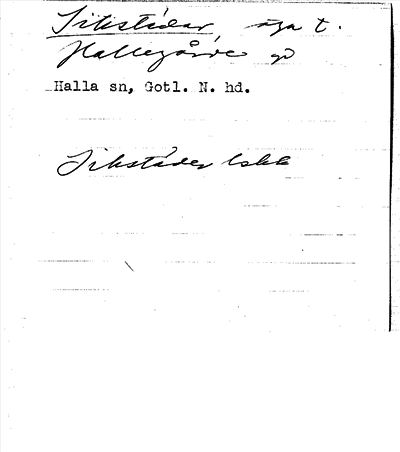 Sikstäder äga t.
Hallegårde gd
Halla sn, Gotl. N. hd.
Sikstäder lskk